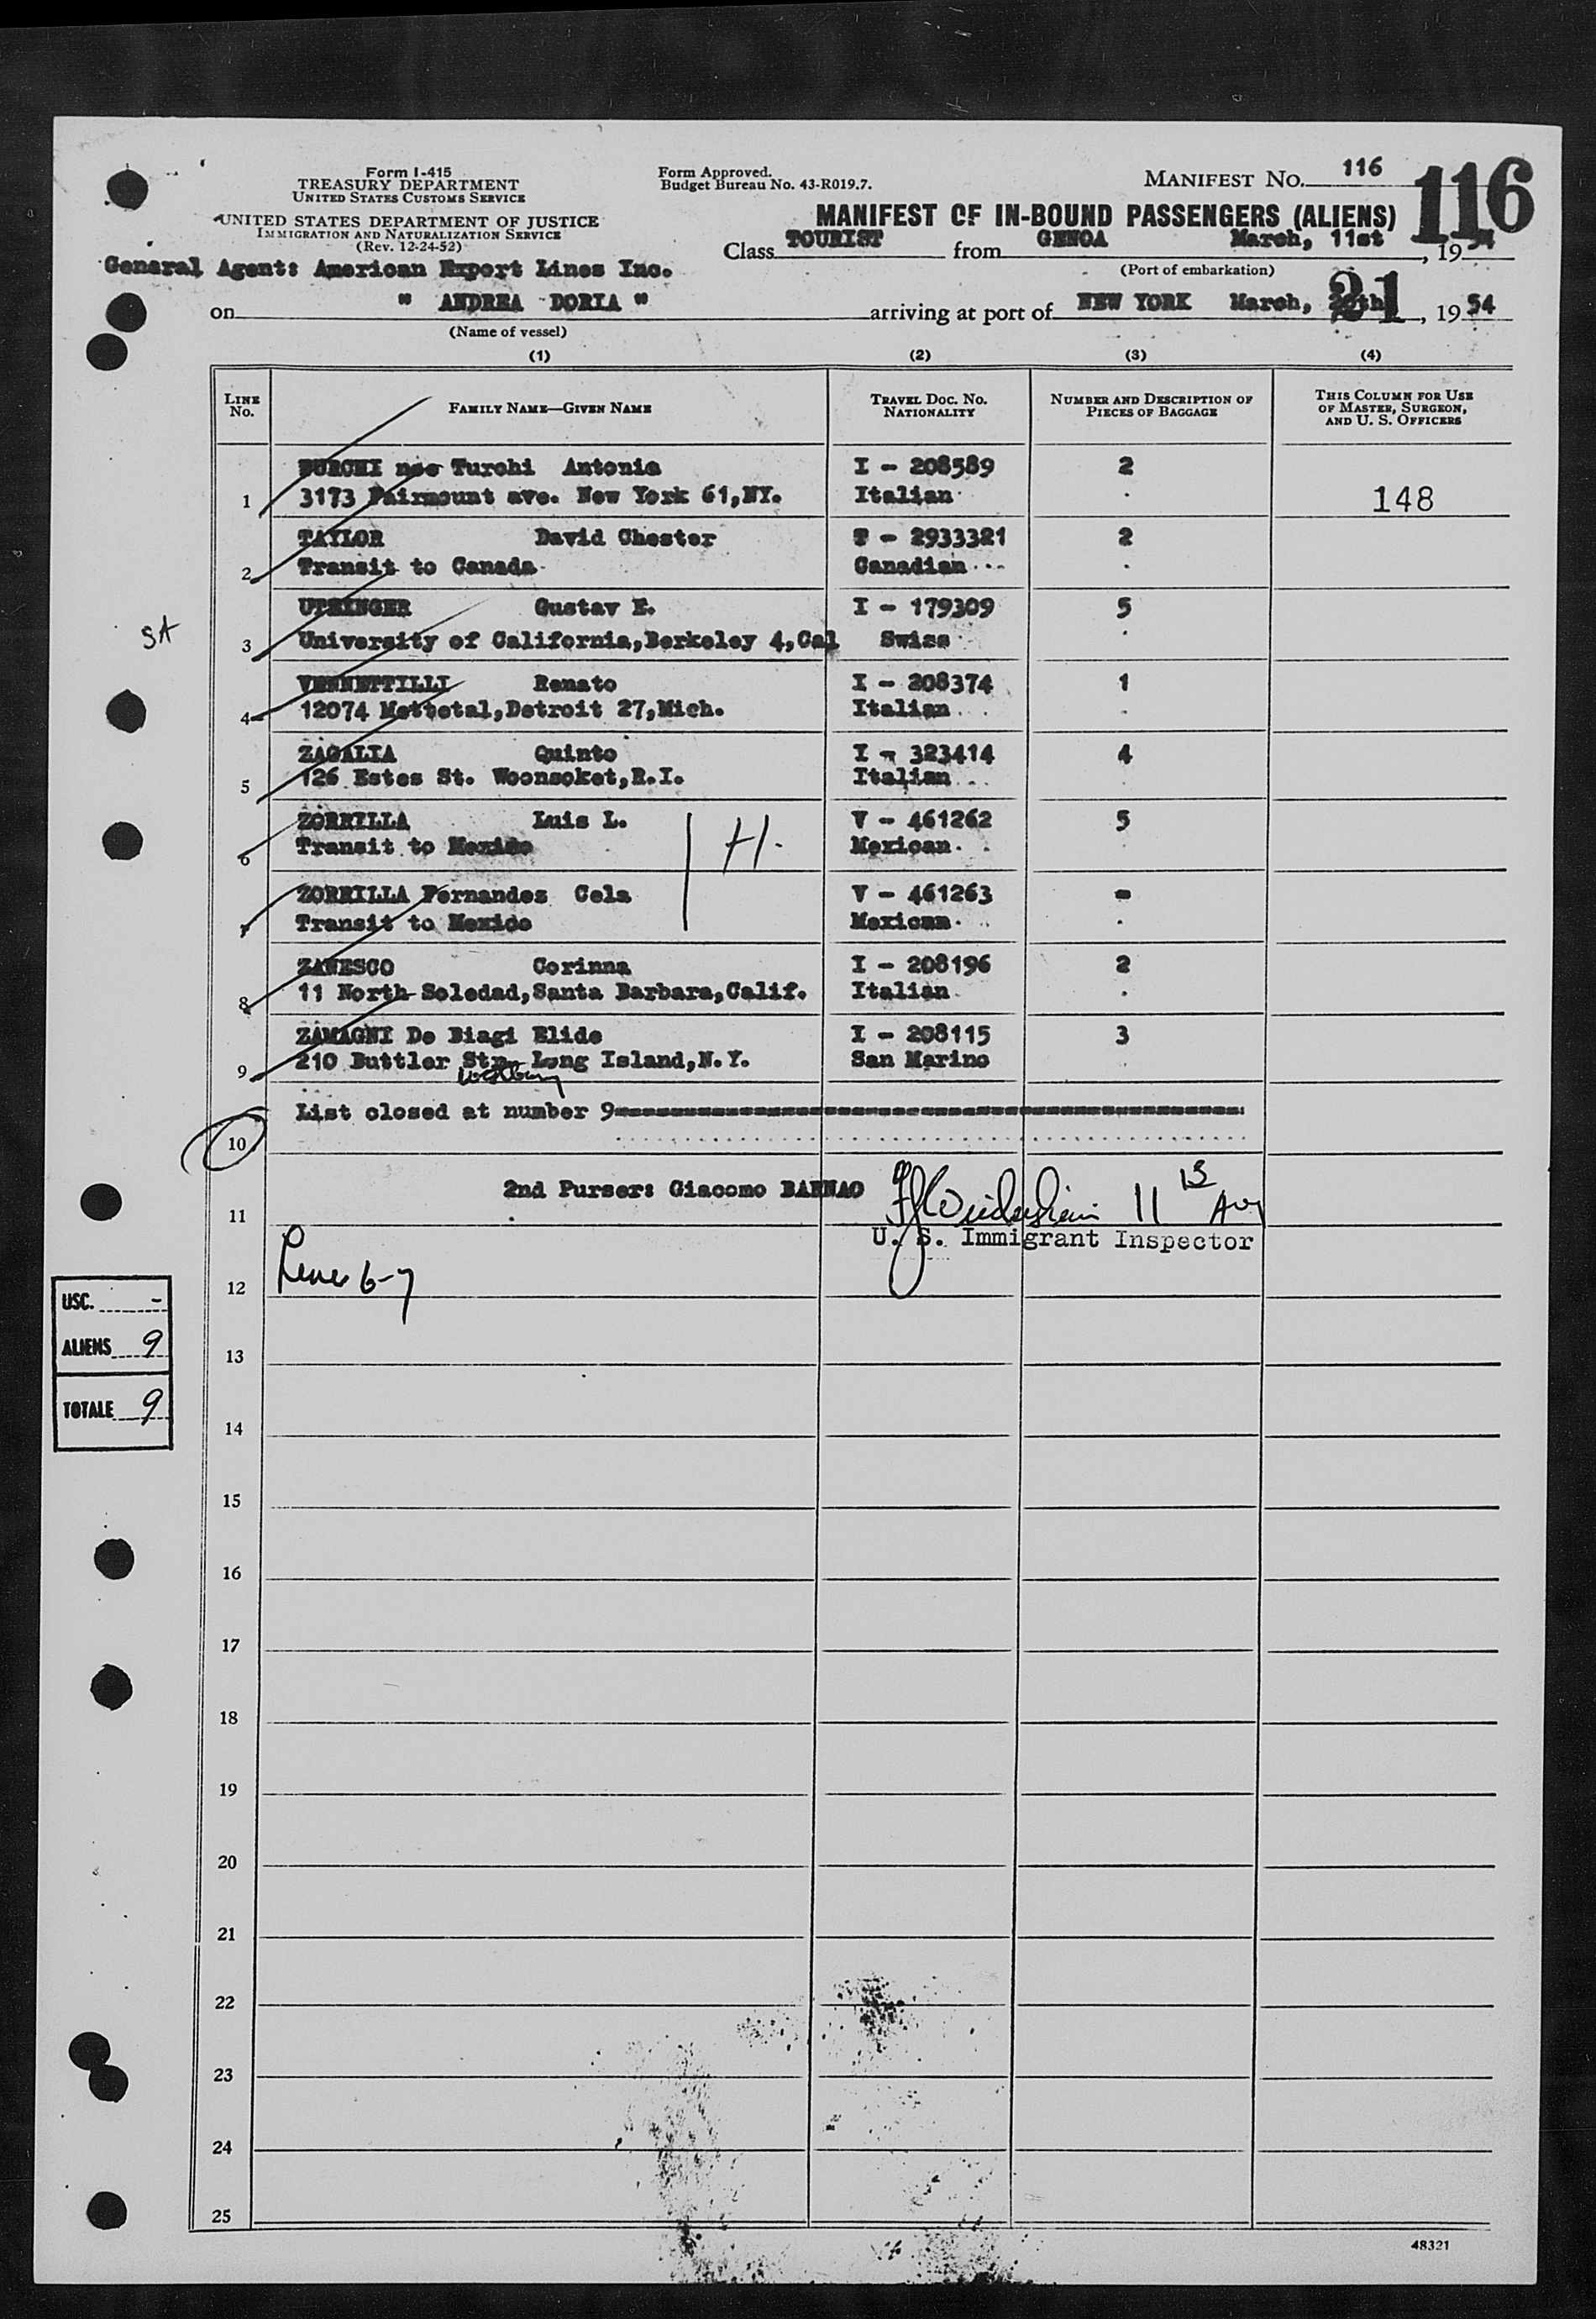 Form I-415
TREASURY DEPARTMENT
UNITED STATES CUSTOMS SERVICE
UNITED STATES DEPARTMENT OF JUSTICE
IMMIGRATION AND NATURALIZATION SERVICE
(Rev. 12-24-52)
Form Approved.
Budget Bureau No. 43-R019.7.
MANIFEST NO. 116
116
MANIFEST OF IN-BOUND PASSENGERS (ALIENS)
Class TOURIST from GENOA March, 11st, 1954
(Port of embarkation)
General Agent: American Export Lines Inc.
on " ANDREA DORIA " arriving at port of NEW YORK March, 21, 1954
(Name of vessel)
(1) (2) (3) (4)
LINE No. FAMILY NAME—GIVEN NAME TRAVEL DOC. NO. NATIONALITY NUMBER AND DESCRIPTION OF PIECES OF BAGGAGE THIS COLUMN FOR USE OF MASTER, SURGEON, AND U. S. OFFICERS
nee Turchi Antonia I - 208589 2
1 3173 Fairmount ave. New York 61,NY. Italian 148
TAYLOR David Chester - 2933321 2
2 Transit to Canada Canadian
UTZINGER Gustav E. I - 179309 5
SA 3 University of California,Berkeley 4,Cal Swiss
VENNETTILLI Renato I - 208374 1
4 12074 Mettetal,Detroit 27,Mich. Italian
ZAGALIA Quinto I - 323414 4
5 126 Estes St. Woonsoket,R.I. Italian
ZORRILLA Luis L. V - 461262 5
6 Transit to Mexico H. Mexican
ZORRILLA Fernandez Cela V - 461263 -
7 Transit to Mexico Mexican
ZANESCO Corinna I - 208196 2
8 11 North Soledad,Santa Barbara,Calif. Italian
ZAMAGNI De Biagi Elide I - 208115 3
9 210 Buttler Str. Long Island,N.Y. San Marino
Westbury
List closed at number 9
10
2nd Purser: Giacomo BARNAO
11
U. S. Immigrant Inspector
12 Lines 6-7
USC. -
ALIENS 9
TOTALE 9
13
14
15
16
17
18
19
20
21
22
23
24
25
48321